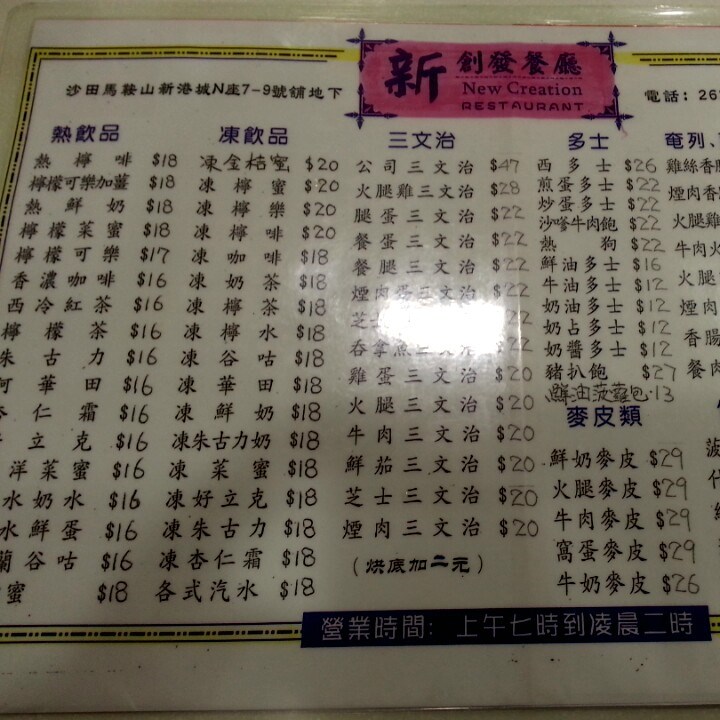 新 創發餐廳
New Creation
RESTAURANT
沙田馬鞍山新港城N座7-9號舖地下
電話: 26
熱飲品
熱檸啡 $18
檸檬可樂加薑 $18
熱鮮奶 $18
檸檬菜蜜 $18
檸檬可樂 $17
香濃咖啡 $16
西冷紅茶 $16
檸檬茶 $16
朱古力 $16
阿華田 $16
杏仁霜 $16
立克 $16
洋菜蜜 $16
水奶水 $16
水鮮蛋 $16
蘭谷咕 $16
蜜 $18
凍飲品
凍金桔蜜 $20
凍檸蜜 $20
凍檸樂 $20
凍檸啡 $20
凍咖啡 $18
凍奶茶 $18
凍檸茶 $18
凍檸水 $18
凍谷咕 $18
凍華田 $18
凍鮮奶 $18
凍朱古力奶 $18
凍菜蜜 $18
凍好立克 $18
凍朱古力 $18
凍杏仁霜 $18
各式汽水 $18
三文治
公司三文治 $47
火腿雞三文治 $28
腿蛋三文治 $22
餐蛋三文治 $22
餐腿三文治 $22
煙肉蛋三文治 $22
芝士
吞拿魚三文治 $22
雞蛋三文治 $20
火腿三文治 $20
牛肉三文治 $20
鮮茄三文治 $20
芝士三文治 $20
煙肉三文治 $20
(烘底加二元)
多士
西多士 $26
煎蛋多士 $22
炒蛋多士 $22
沙嗲牛肉飽 $22
熱狗 $22
鮮油多士 $16
牛油多士 $12
奶油多士 $12
奶占多士 $12
奶醬多士 $12
豬扒飽 $27
鮮油菠蘿包 13
麥皮類
鮮奶麥皮 $29
火腿麥皮 $29
牛肉麥皮 $29
窩蛋麥皮 $29
牛奶麥皮 $26
奄列、
雞絲香腸
煙肉香
火腿雞
牛肉火
火腿
煙肉
香腸
餐肉
營業時間: 上午七時到凌晨二時